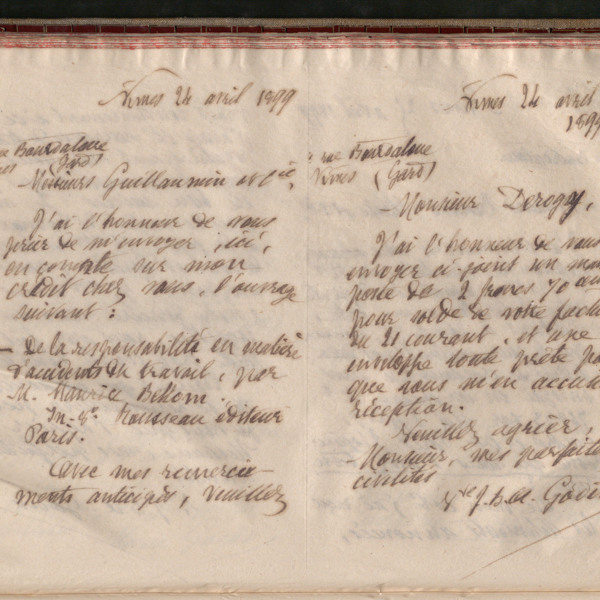 Nîmes 24 avril 1899
rue Bourdaloue
(Gard)
Messieurs Guillaumin et Cie,
J'ai l'honneur de vous
prier de m'envoyer, ici,
en compte sur mon
crédit chez vous, l'ouvrage
suivant :
— De la responsabilité en matière
d'accidents du travail, par
M. Maurice Bellom.
In-8°. Rousseau éditeur
Paris.
Avec mes remercie-
ments anticipés, veuillez
Nîmes 24 avril
1899
rue Bourdaloue
Nîmes (Gard)
Monsieur Derogy,
J'ai l'honneur de vous
envoyer ci-joint un man
poste de 2 francs 70
pour solde de votre factu
du 21 courant, et une
enveloppe toute prête po
que vous m'en accus
réception.
Veuillez agréer,
Monsieur, mes parfaites
civilités
J. Bte A. Godin